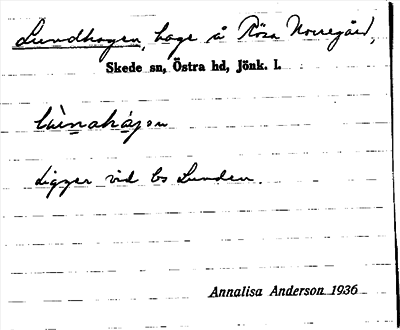 Lundhagen, hage å Rösa Norregård,
Skede sn, Östra hd, Jönk. l.
Ligger vid bs Lunden.
Annalisa Anderson 1936